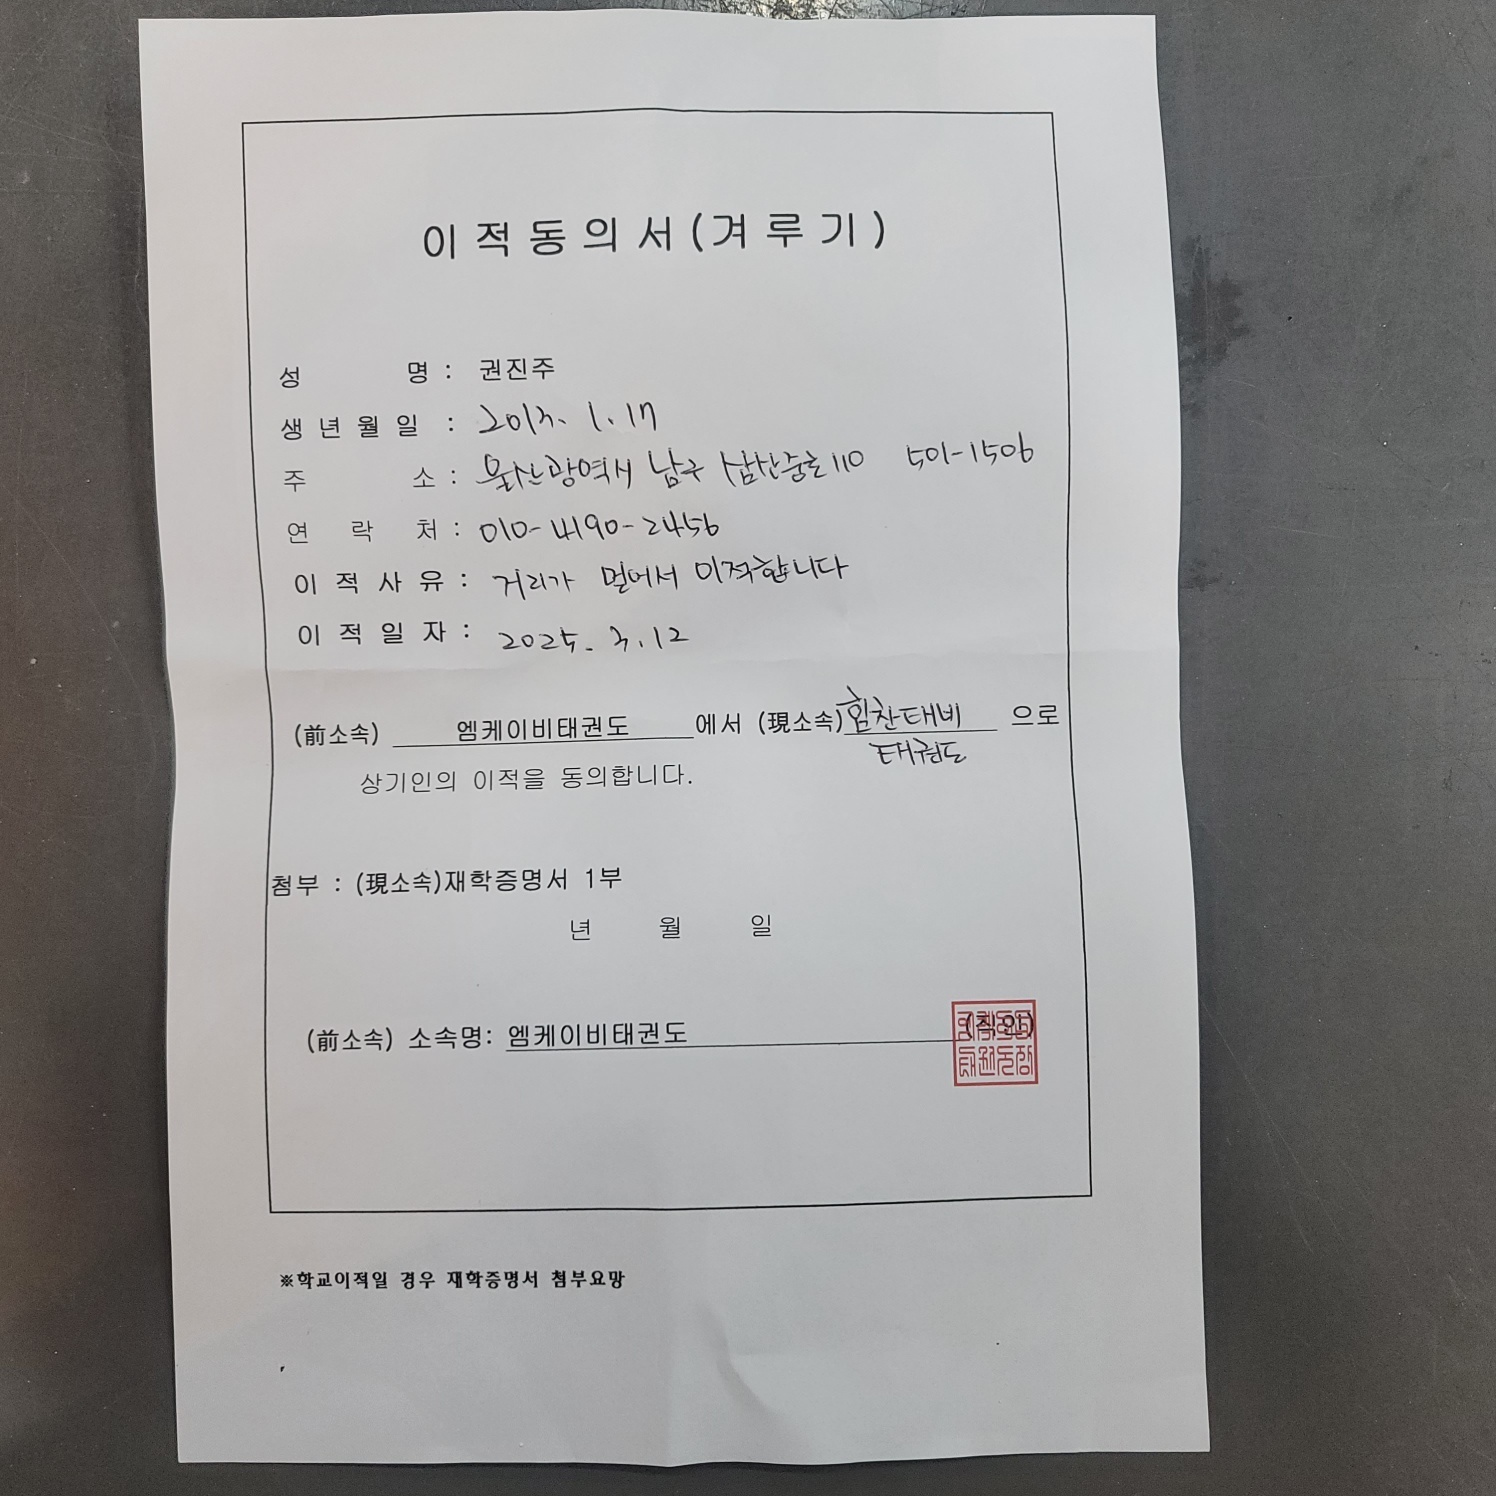 이적동의서(겨루기)
성 명 : 권진주
생년월일 : 2013. 1. 17
주 소 : 울산광역시 남구 삼산중로 110 501-1506
연 락 처 : 010-4190-2456
이적사유 : 거리가 멀어서 이적합니다
이적일자 : 2025. 3. 12
(前소속) 엠케이비태권도 에서 (現소속) 힘찬태비 으로
태권도
상기인의 이적을 동의합니다.
첨부 : (現소속)재학증명서 1부
년 월 일
(前소속) 소속명: 엠케이비태권도 (직인)
※학교이적일 경우 재학증명서 첨부요망